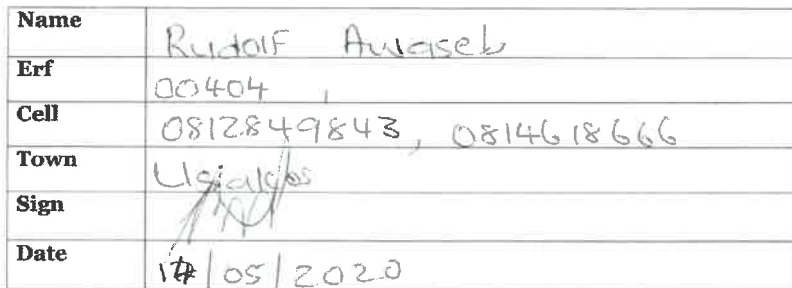 Name Rudolf Awaseb
Erf 00404
Cell 0812849843, 0814618666
Town Usakos
Sign
Date /05/2020